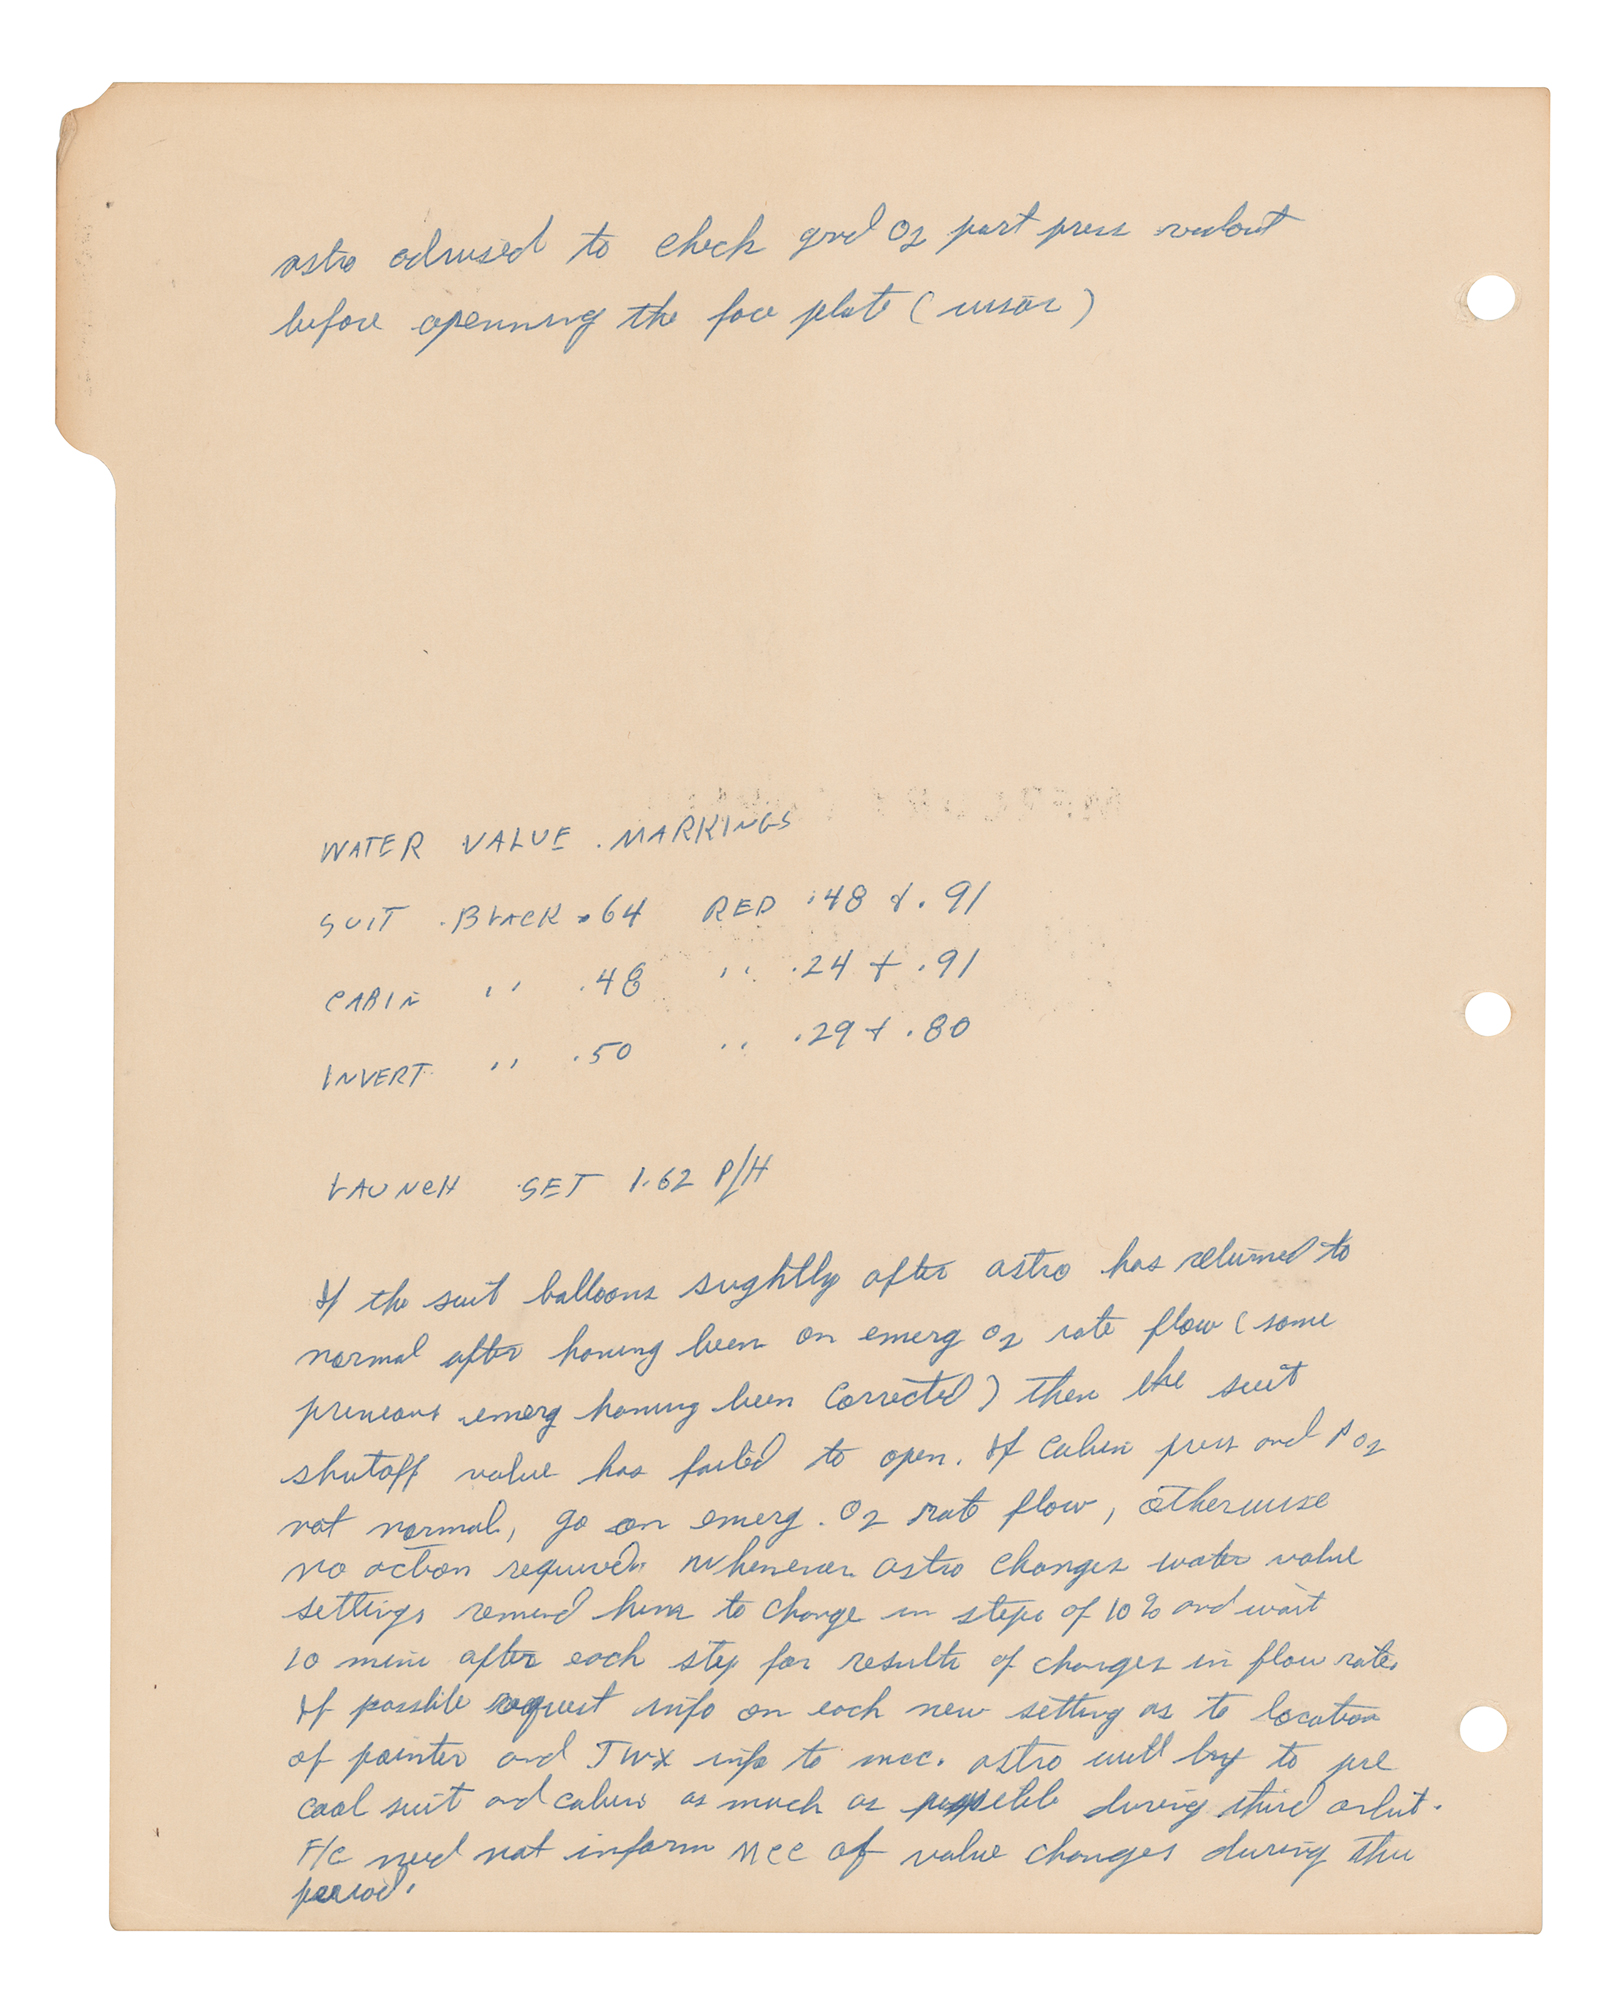 astro advised to check good O2 part press readout
before openning the face plate (visor)
WATER VALVE MARKINGS
SUIT BLACK .64 RED .48 & .91
CABIN '' .48 '' .24 & .91
INVERT '' .50 '' .29 & .80
LAUNCH SET 1.62 P/H
If the suit balloons slightly after astro has returned to
normal after having been on emerg O2 rate flow (some
previous emerg having been corrected) then the suit
shutoff valve has failed to open. If cabin press and P O2
not normal, go on emerg. O2 rate flow, otherwise
no action required. Whenever astro changes water valve
settings remind him to change in steps of 10% and wait
10 min after each step for results of changes in flow rate.
If possible request info on each new setting as to location
of pointer and TWX info to mcc. astro will try to pre
cool suit and cabin as much as possible during third orbit.
F/C need not inform MCC of valve changes during this
period.